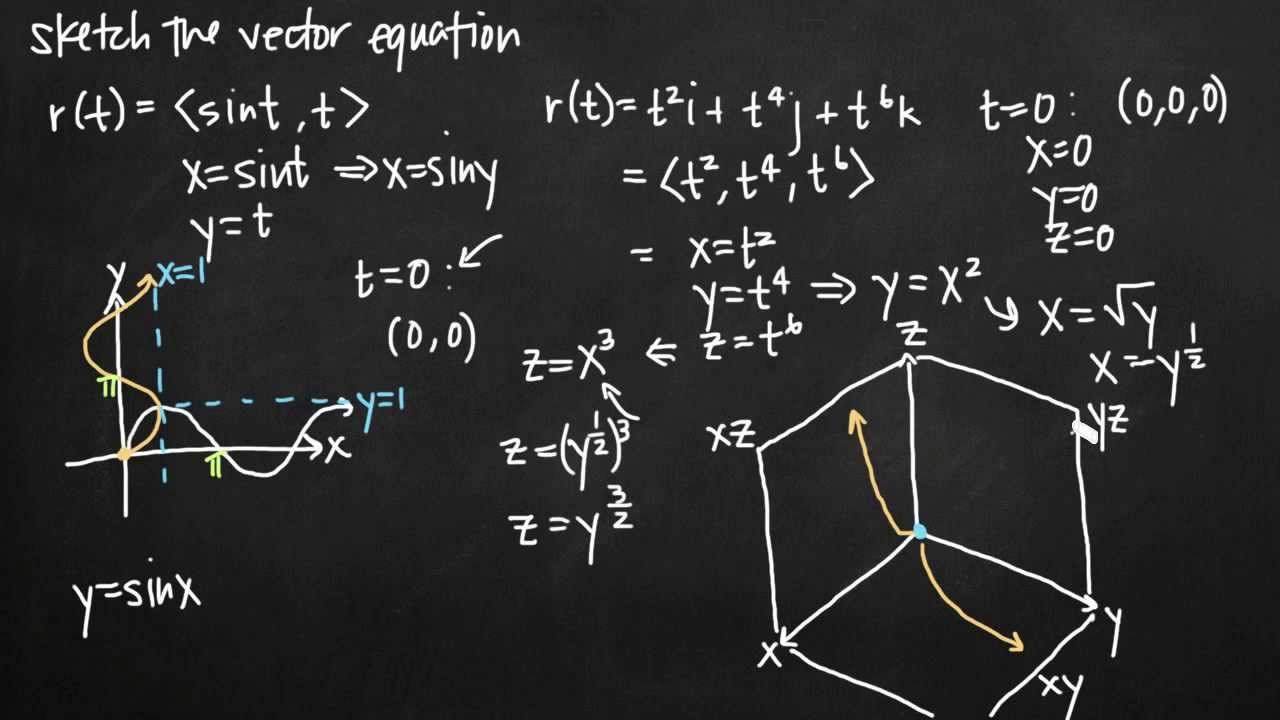 sketch the vector equation
r(t) = ⟨sint, t⟩
x=sint ⇒ x=siny
y=t
t=0:
(0,0)
y
x=1
π
y=1
π
x
y=sinx
r(t)= t²i + t⁴j + t⁶k
= ⟨t², t⁴, t⁶⟩
= x=t²
y=t⁴ ⇒ y=x² ↘ x=√y
x=y^(1/2)
z=x³ ⇐ z=t⁶
z=(y^(1/2))³
z=y^(3/2)
t=0: (0,0,0)
x=0
y=0
z=0
z
xz
yz
x
y
xy